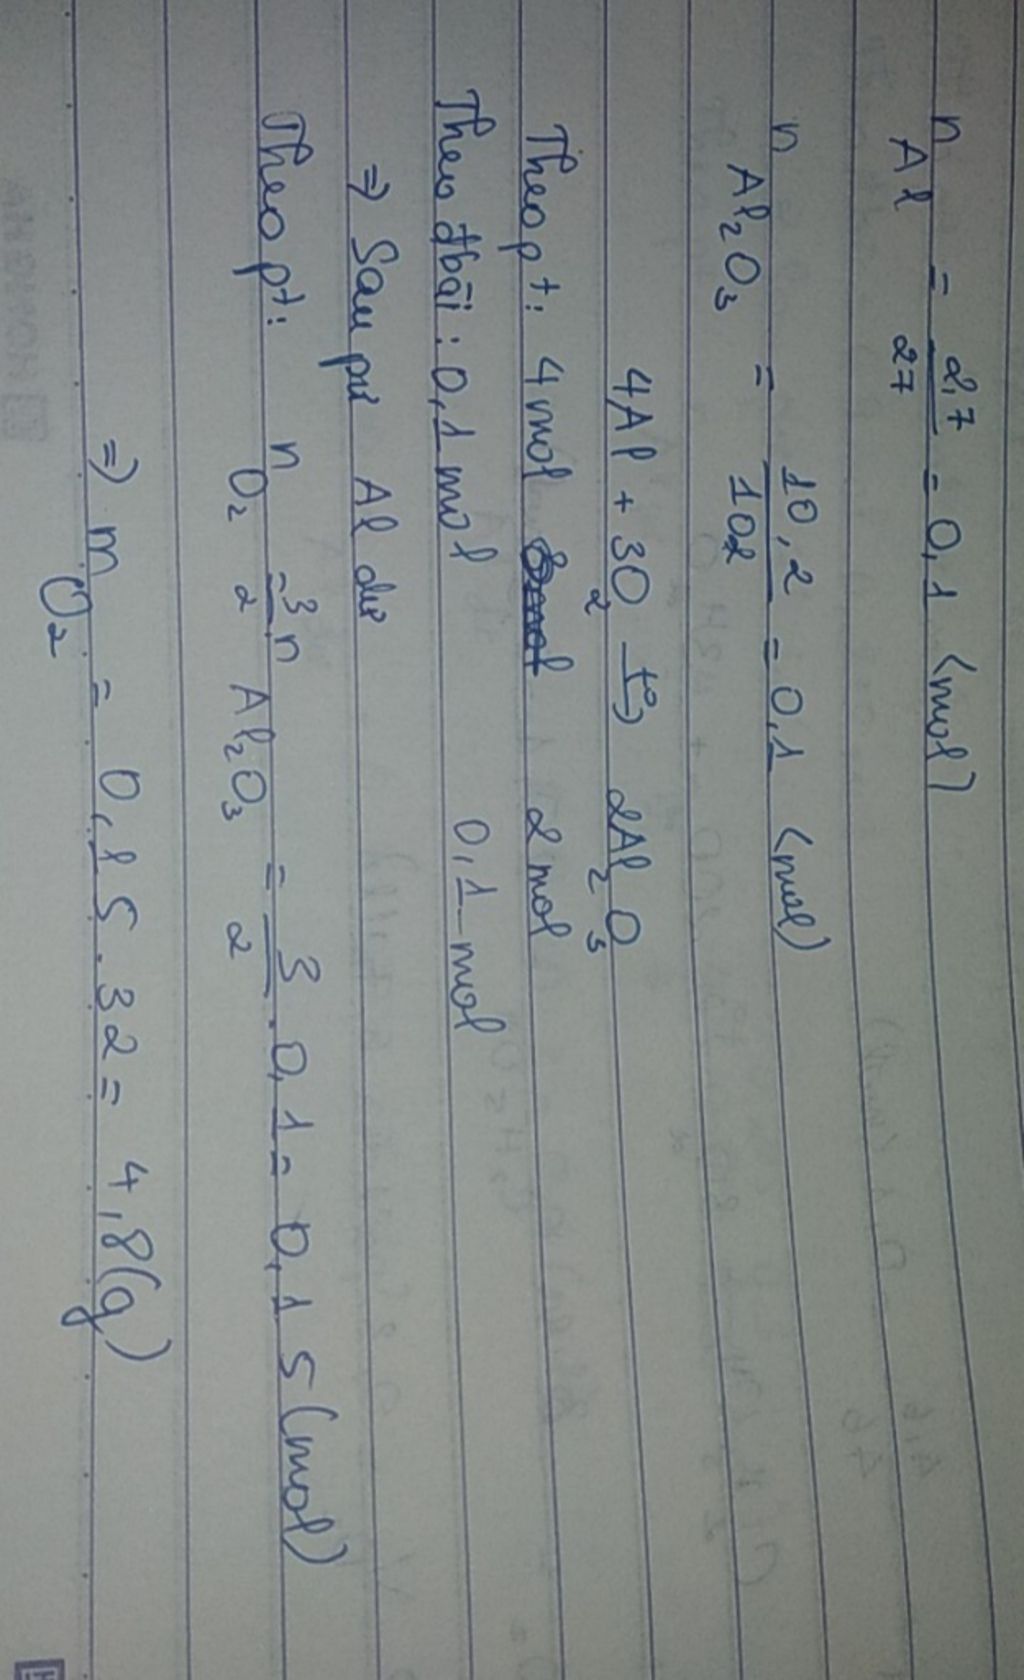 n Al = 2,7/27 = 0,1 (mol)
n Al₂O₃ = 10,2/102 = 0,1 (mol)
4Al + 3O₂ t°→ 2Al₂O₃
Theo pt: 4 mol 2 mol
Theo đbài: 0,1 mol 0,1 mol
⇒ Sau pư Al dư
Theo pt: n O₂ = 3/2 n Al₂O₃ = 3/2 . 0,1 = 0,15 (mol)
⇒ m O₂ = 0,15 . 32 = 4,8 (g)